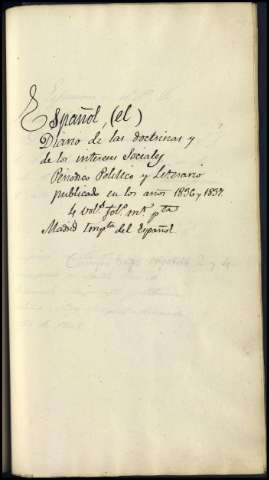 Español, (el)
Diario de las doctrinas y
de los intereses Sociales
Periodico Politico y Literario
publicado en los años 1836 y 1837.
4 vols. fol. mr. pta
Madrid Impta del Español